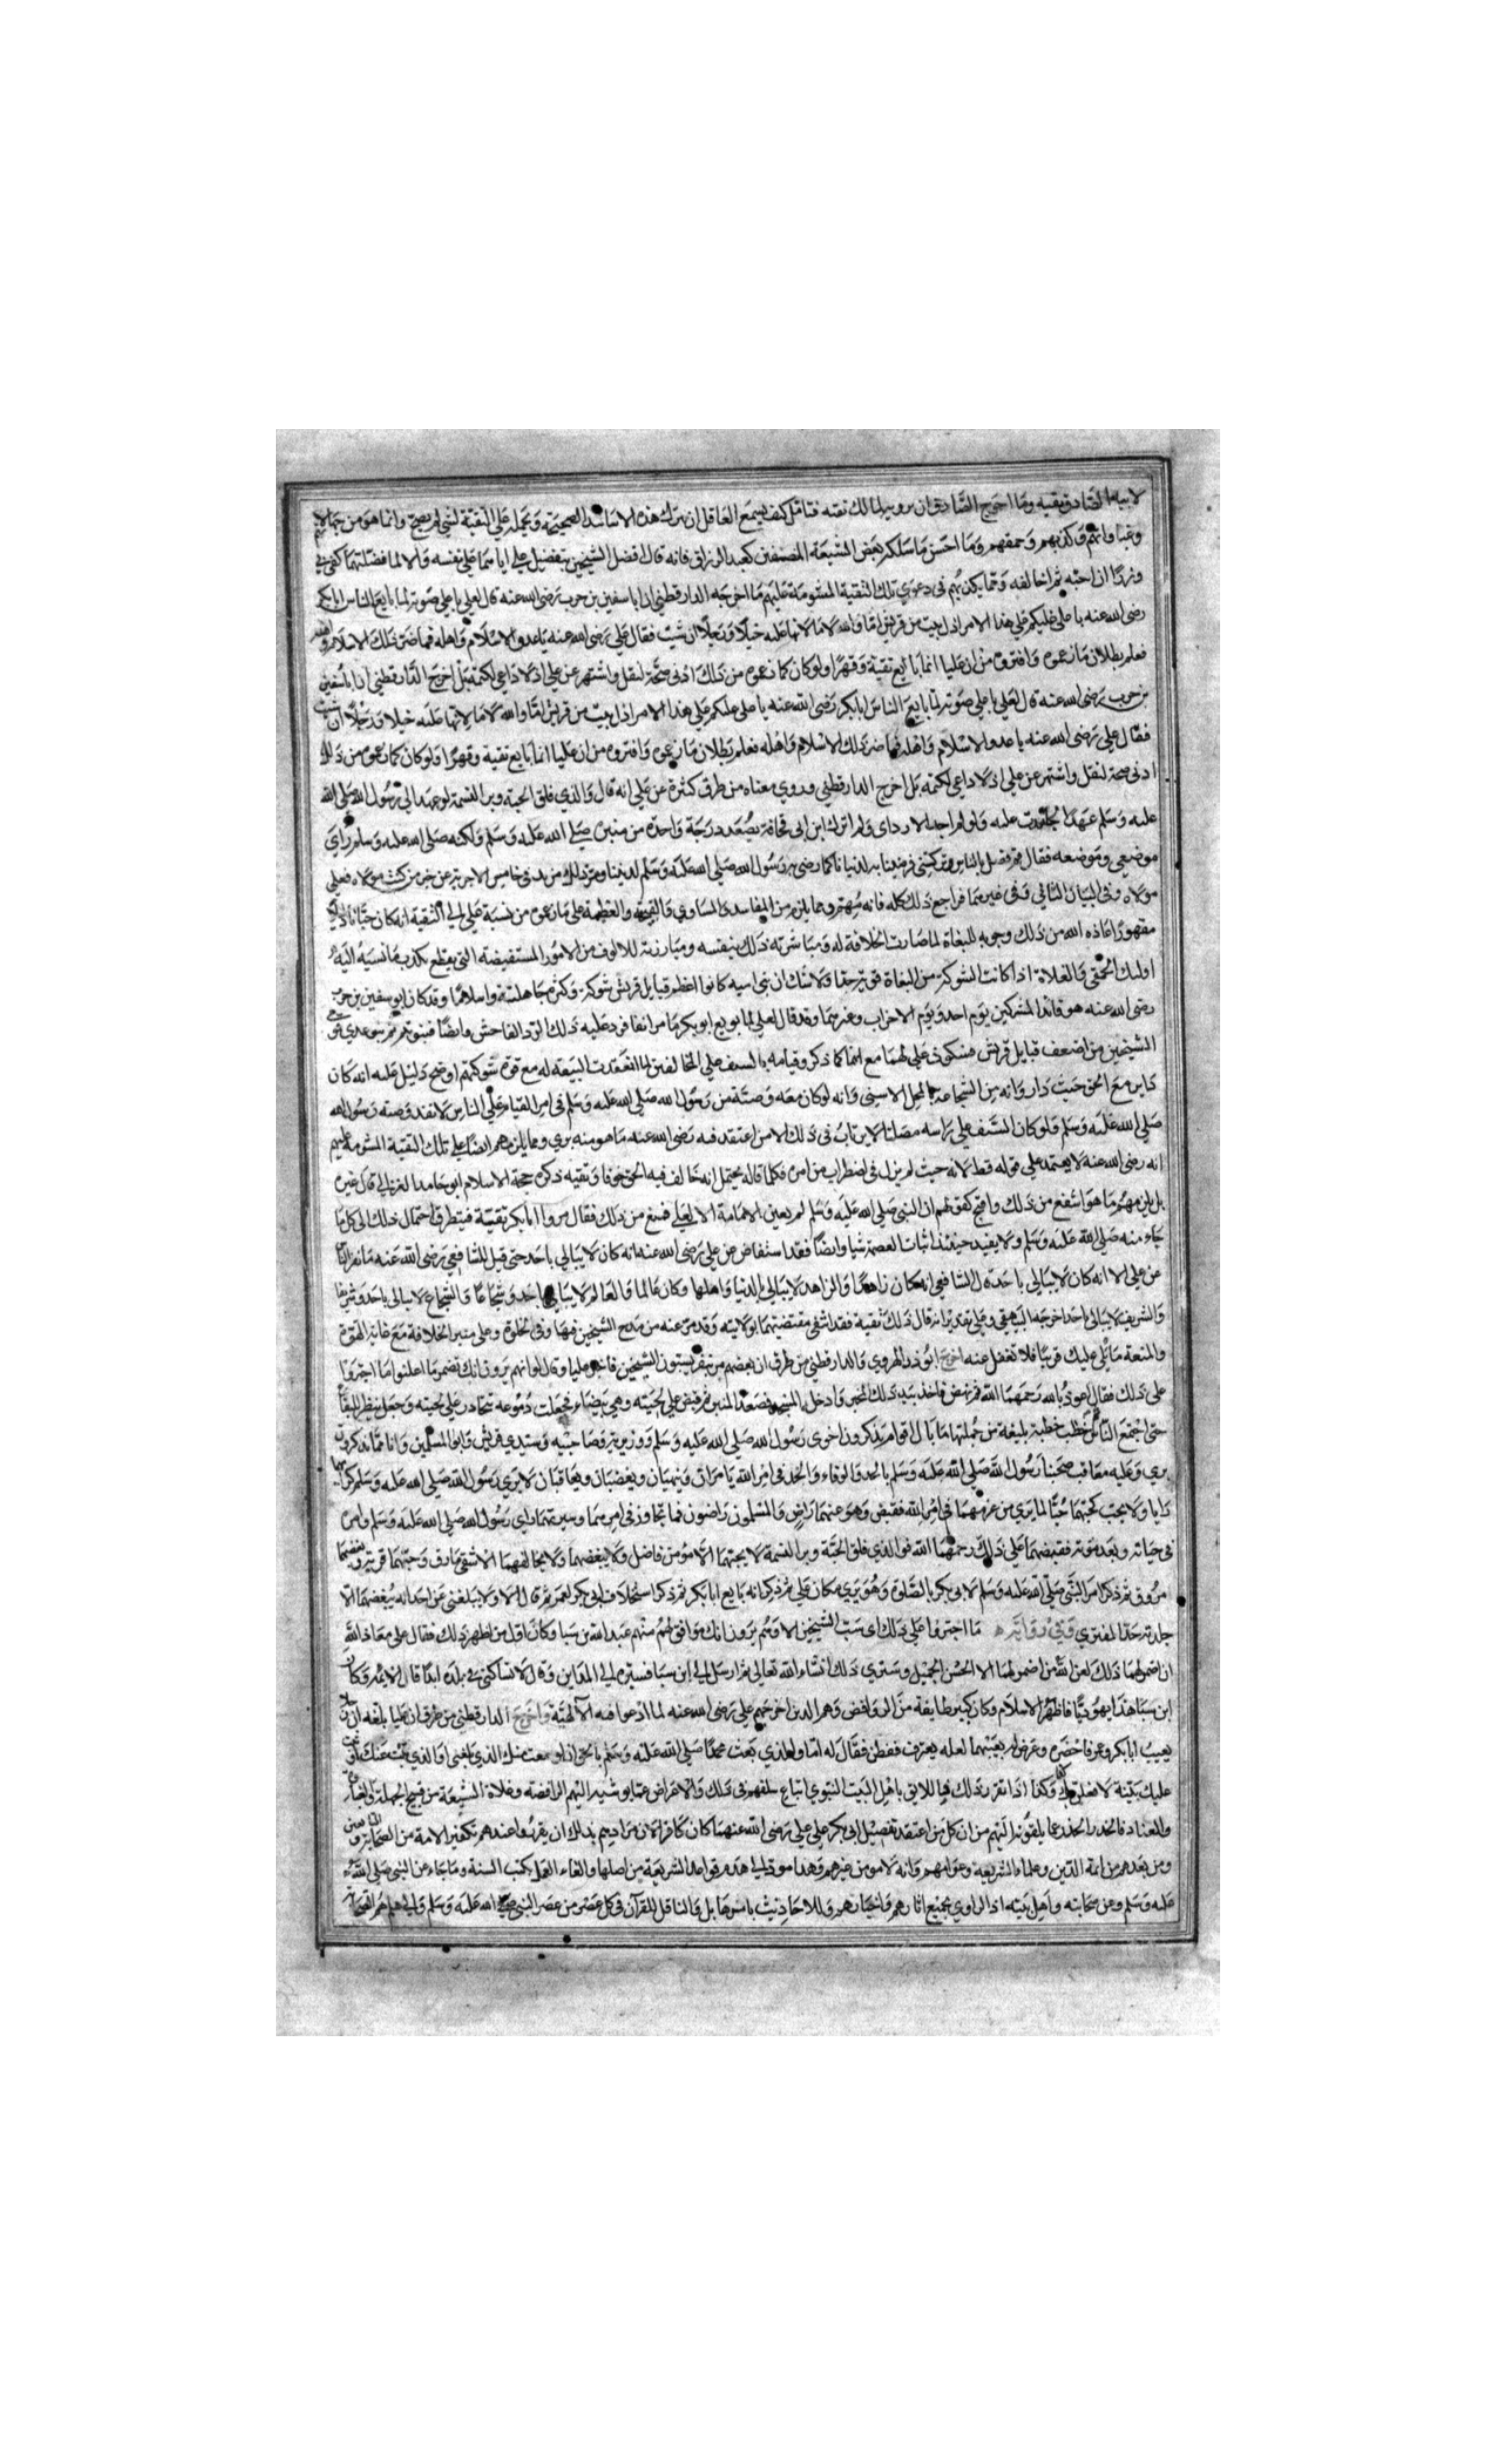 لابيه الصادق تقيه وما احوج الصادق ان يرويه لمالك تقيه فتامل كيف يسمع العاقل ان يترك هذه الاسانيد الصحيحة ويحمله على التقية لشي لم يصح وانما هو من جهالاتهم
وغباوتهم وكذبهم وحمقهم وما احسن ما سلكه بعض الشيعة المصنفين كعبد الرزاق فانه قال افضل الشيخين بتفضيل علي اياهما على نفسه والا لما فضلتهما كفى بي
وزرا ان احبه ثم اخالفه ومما يكذبهم في دعوي تلك التقية المشومة عليهم ما اخرجه الدارقطني ان ابا سفين بن حرب رضى الله عنه قال لعلي باعلى صوته لما بايع الناس ابا بكر
رضى الله عنه يا علي غلبكم علي هذا الامر اذل بيت من قريش اما والله لاملانها عليه خيلا ورجلا ان شيت فقال علي رضي الله عنه يا عدو الاسلام واهله فما ضر ذلك الاسلام واهله
فعلم بطلان ما زعموه وافتروه من ان عليا انما بايع تقية وقهرا ولو كان كما زعموه من ذلك ادنى صحة لنقل واشتهر عن علي اذ لا داعي لكتمه بل اخرج الدارقطني ان ابا سفين
بن حرب رضى الله عنه قال لعلي باعلى صوته لما بايع الناس ابا بكر رضى الله عنه يا علي غلبكم علي هذا الامر اذل بيت من قريش اما والله لاملانها عليه خيلا ورجلا ان شيت
فقال علي رضى الله عنه يا عدو الاسلام واهله فما ضر ذلك الاسلام واهله فعلم بطلان ما زعموه وافتروه من ان عليا انما بايع تقية وقهرا ولو كان كما زعموه من ذلك
ادنى صحة لنقل واشتهر عن علي اذ لا داعي لكتمه بل اخرج الدارقطني وروي معناه من طرق كثيرة عن علي انه قال والذي فلق الحبة وبرا النسمة لو عهد الي رسول الله صلى الله
عليه وسلم عهدا لجالدت عليه ولو لم اجد الا رداي ولم اترك ابن ابى قحافة يصعد درجة واحدة من منبره صلى الله عليه وسلم ولكنه صلى الله عليه وسلم راي
موضعي وموضعه فقال قم فصل بالناس وتركني فرضينا به لدنيانا كما رضى به رسول الله صلى الله عليه وسلم لديننا ومر ذلك مزيد في خامس الاجوبة عن خبر من كنت مولاه فعلي
مولاه وفي البيان الثاني وفى غيرهما فراجع ذلك كله فانه مهم ومما يلزم من المفاسد والمساوي والقبيحة والعظيمة على ما زعموه من نسبة علي الي التقية انه كان جبانا ذليلا
مقهورا اعاذه الله من ذلك وحروبه للبغاة لما صارت الخلافة له ومباشرته ذلك بنفسه ومبارزته للالوف من الامور المستفيضة التي يقطع بكذب ما نسبه اليه
اوليك الحمقى والغلاة اذ كانت الشوكة من البغاة قوية جدا ولا شك ان بني اميه كانوا اعظم قبايل قريش شوكة وكثرة جاهلية واسلاما وقد كان ابو سفين بن حرب
رضى الله عنه هو قائد المشركين يوم احد ويوم الاحزاب وغيرهما وقد قال لعلي لما بويع ابو بكر ما مر انفا فرد عليه ذلك الرد الفاحش وايضا فبنو تيم ثم بنو عدي قوم
الشيخين من اضعف قبايل قريش فسكوت علي لهما مع انهما كما ذكر وقيامه بالسيف علي المخالفين لما انعقدت البيعة له مع قوة شوكتهم اوضح دليل عليه انه كان
داير مع الحق حيث دار وانه من الشجاعة بالمحل الاسنى وانه لو كان معه وصية من رسول الله صلى الله عليه وسلم في امر القيام علي الناس لانفذ وصية رسول الله
صلى الله عليه وسلم ولو كان السيف علي راسه مصلتا لا يرتاب في ذلك الا من اعتقد فيه رضى الله عنه ما هو منه بري ومما يلزمهم ايضا علي تلك التقية المشومة عليهم
انه رضى الله عنه لا يعتمد علي قوله قط لانه حيث لم يزل في اضطراب من امره فكلما قاله يحتمل انه خالف فيه الحق خوفا وتقيه ذكره حجة الاسلام ابو حامد الغزالي قال غيره
بل يلزمهم ما هو اشنع من ذلك واقبح كقولهم ان النبي صلى الله عليه وسلم لم يعين الامامة الا لعلي فمنع من ذلك فقال مروا ابا بكر تقية فيتطرق احتمال ذلك الى كل ما
جاء منه صلى الله عليه وسلم ولا يفيد حينئذ اثبات العصمة شيا وايضا فقد استفاض عن علي رضى الله عنه انه كان لا يبالي باحد حتى قيل للشافعي رضى الله عنه ما نفر الناس
عن علي الا انه كان لا يبالى باحد قال الشافعي انه كان زاهدا والزاهد لا يبالي بالدنيا واهلها وكان عالما والعالم لا يبالي باحد وشجاعا والشجاع لا يبالى باحد وشريفا
والشريف لا يبالى باحد اخرجه البيهقي وعلى تقدير انه قال ذلك تقية فقد انتفى مقتضيتهما بولايته وقد مر عنه من مدح الشيخين فيها وفى الخلوة وعلى منبر الخلافة مع غاية القوة
والمنعة ما يتلى عليك قريبا فلا تغفل عنه اخرج ابو ذر الهروي والدارقطني من طرق ان بعضهم مر بنفر يسبون الشيخين فاخبر عليا وقال لولا انهم يرون انك تضمر ما اعلنوا ما اجتروا
على ذلك فقال اعوذ بالله رحمهما الله ثم نهض فاخذ بيد ذلك المخبر وادخله المسجد فصعد المنبر ثم قبض علي لحيته وهي بيضاء فجعلت دموعه تتحادر على لحيته وجعل ينظر للبقاع
حتى اجتمع الناس ثم خطب خطبة بليغة من جملتها ما بال اقوام يذكرون اخوى رسول الله صلى الله عليه وسلم ووزيريه وصاحبيه وسيدي قريش وابوا المسلمين وانا مما يذكرون
بري وعليه معاقب صحبنا رسول الله صلى الله عليه وسلم بالحد والوفاء والجد في امر الله يامران وينهيان ويغضبان ويعاقبان لا يري رسول الله صلى الله عليه وسلم كرايهما
رايا ولا يحب كحبهما حبا لما يري من عزمهما في امر الله فقبض وهو عنهما راض والمسلمون راضون فما تجاوزا في امرهما وسيرتهما راي رسول الله صلى الله عليه وسلم وامره
في حياته وبعد موته فقبضهما علي ذلك رحمهما الله فوالذي فلق الحبة وبرا النسمة لا يحبهما الا مؤمن فاضل ولا يبغضهما ولا يخالفهما الا شقي مارق وحبهما قربة وبغضهما
مروق ثم ذكر امر النبي صلى الله عليه وسلم لابى بكر بالصلوة وهو يري مكان علي ثم ذكر انه بايع ابا بكر ثم ذكر استخلاف ابى بكر لعمر ثم قال الا ولا يبلغني عن احد انه يبغضهما الا
جلدته حد المفتري وفي رواية ما اجتروا علي ذلك اى سب الشيخين الا وهم يرون انك موافق لهم منهم عبد الله بن سبا وكان اول من اظهر ذلك فقال علي معاذ الله
ان اضمر لهما ذلك لعن الله من اضمر لهما الا الحسن الجميل وستري ذلك ان شاء الله تعالى ثم ارسل الي ابن سبا فسيره الي المداين وقال لا تساكنني في بلدة ابدا قال الايمة وكان
ابن سبا هذا يهوديا فاظهر الاسلام وكان كبير طايفة من الروافض وهم الذين اخرجهم علي رضى الله عنه لما ادعوا فيه الالهية واخرج الدارقطني من طرق ان عليا بلغه ان رجلا
يعيب ابا بكر وعمر فاحضره وعرض له بعيبهما لعله يعترف ففطن فقال له اما والذي بعث محمدا صلى الله عليه وسلم بالحق ان لو سمعت منك الذي بلغني او الذي نبئت عنك وثبت
عليك ببينة لافعلن بك كذا وكذا اذا تقرر ذلك فاللايق باهل البيت النبوي اتباع سلفهم في ذلك والاعراض عما يوشيه اليهم الرافضة وغلاة الشيعة من قبيح الجهل والغباوة
والعناد فالحذر الحذر عما يلقونه اليهم من ان كل من اعتقد تفضيل ابى بكر علي علي رضى الله عنهما كان كافرا لان مرادهم بذلك ان يقرروا عندهم تكفير الامة من الصحابة والتابعين
ومن بعدهم من ايمة الدين وعلماء الشريعة وعوامهم وانه لا مومن غيرهم وهذا مود الي هدم قواعد الشريعة من اصلها والغاء العمل بكتب السنة وما جاء عن النبي صلى الله
عليه وسلم وعن صحابته واهل بيته اذ الراوي لجميع اثارهم واخبارهم وللاحاديث باسرها بل والناقل للقرآن فى كل عصر من عصر النبي صلى الله عليه وسلم والي هلم هم الصحابة